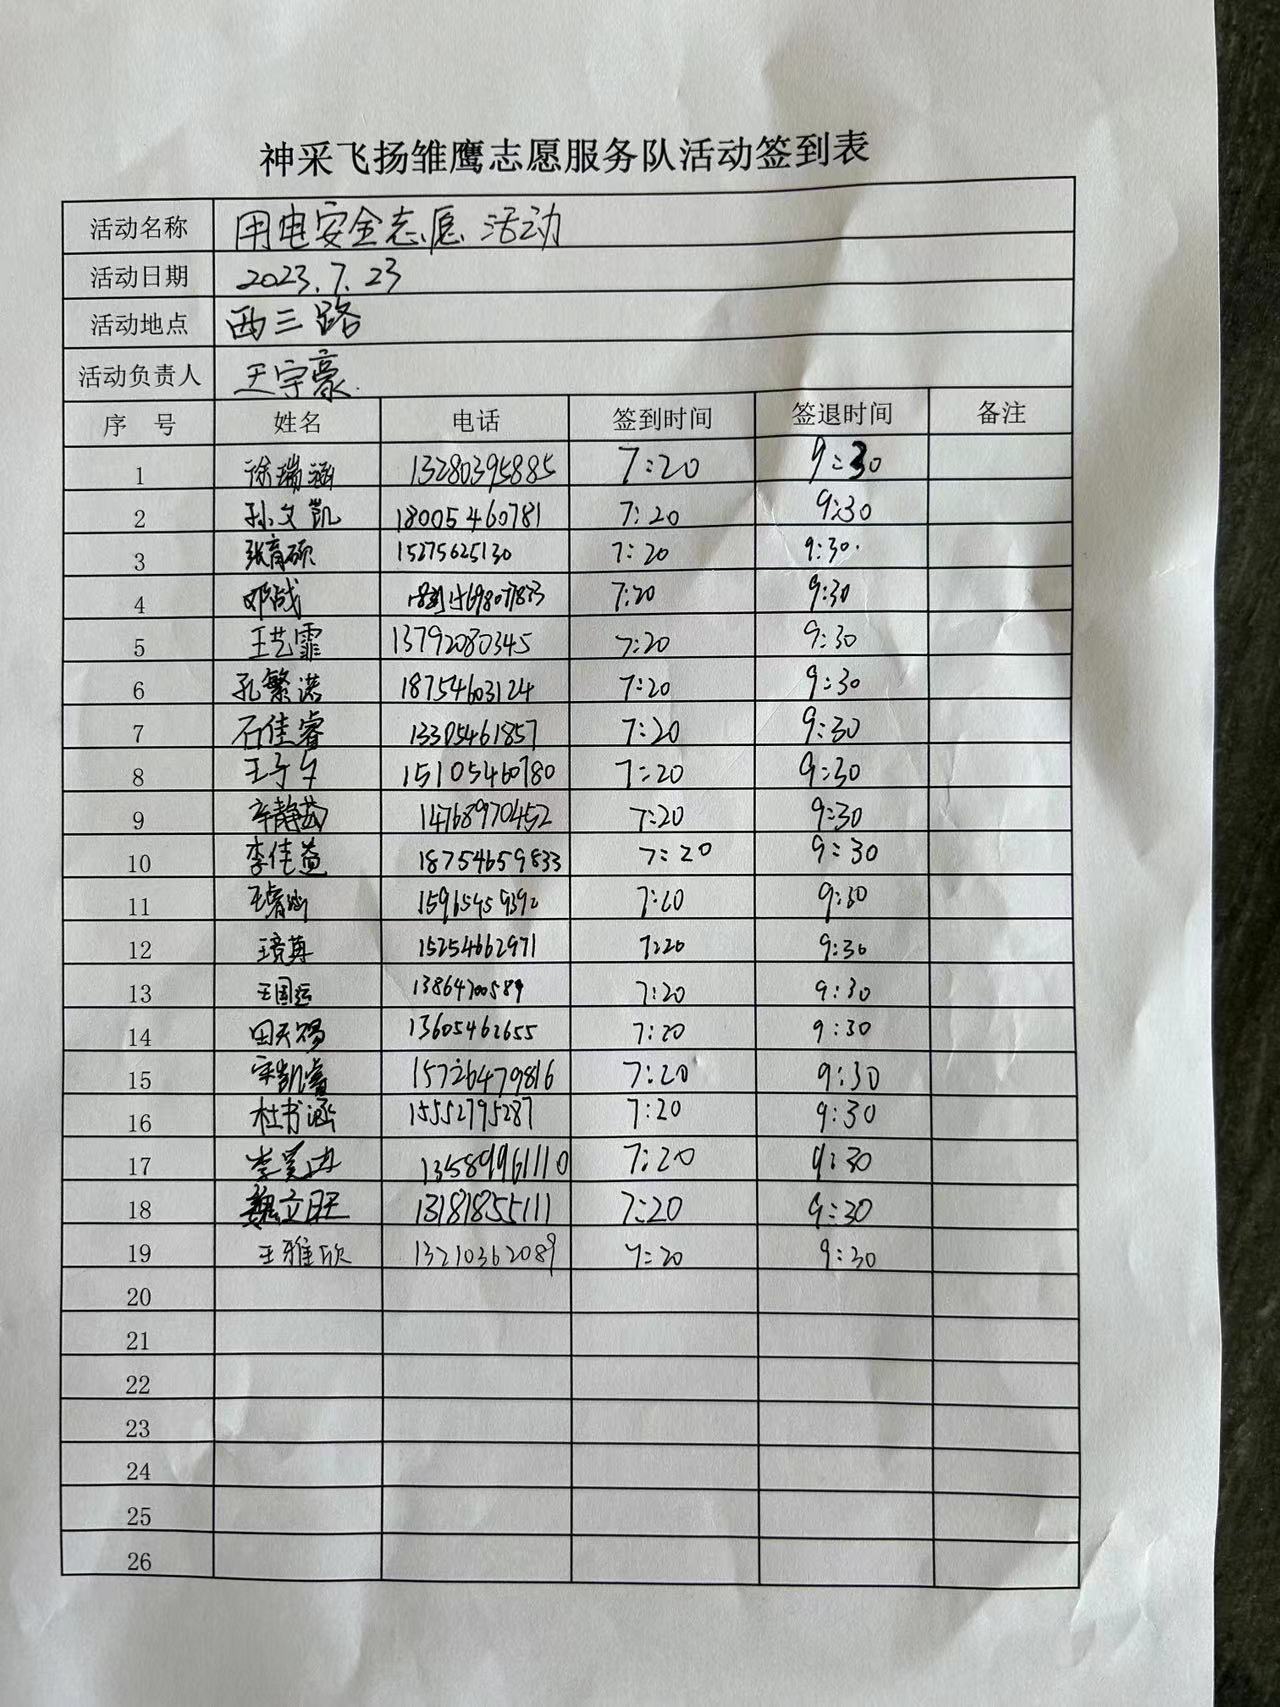 神采飞扬雏鹰志愿服务队活动签到表
活动名称 用电安全志愿活动
活动日期 2023.7.23
活动地点 西三路
活动负责人 王宇豪.
序 号 姓名 电话 签到时间 签退时间 备注
1 徐瑞涵 13280395885 7:20 9:30
2 孙文凯 18005460781 7:20 9:30
3 张育硕 15275625130 7:20 9:30.
4 邓战 7:20 9:30
5 王艺霏 13792080345 7:20 9:30
6 孔繁诺 18754603124 7:20 9:30
7 石佳睿 13305461857 7:20 9:30
8 王子夕 15105460780 7:20 9:30
9 14768970452 7:20 9:30
10 李佳益 18754659833 7:20 9:30
11 15965459392 7:20 9:30
12 15254662971 7:20 9:30
13 王国运 13864700589 7:20 9:30
14 田天赐 13605462655 7:20 9:30
15 宋凯睿 15726479816 7:20 9:30
16 杜书涵 15552795287 7:20 9:30
17 13589961110 7:20 9:30
18 魏立旺 13181855111 7:20 9:30
19 王雅欣 13210362089 7:20 9:30
20
21
22
23
24
25
26